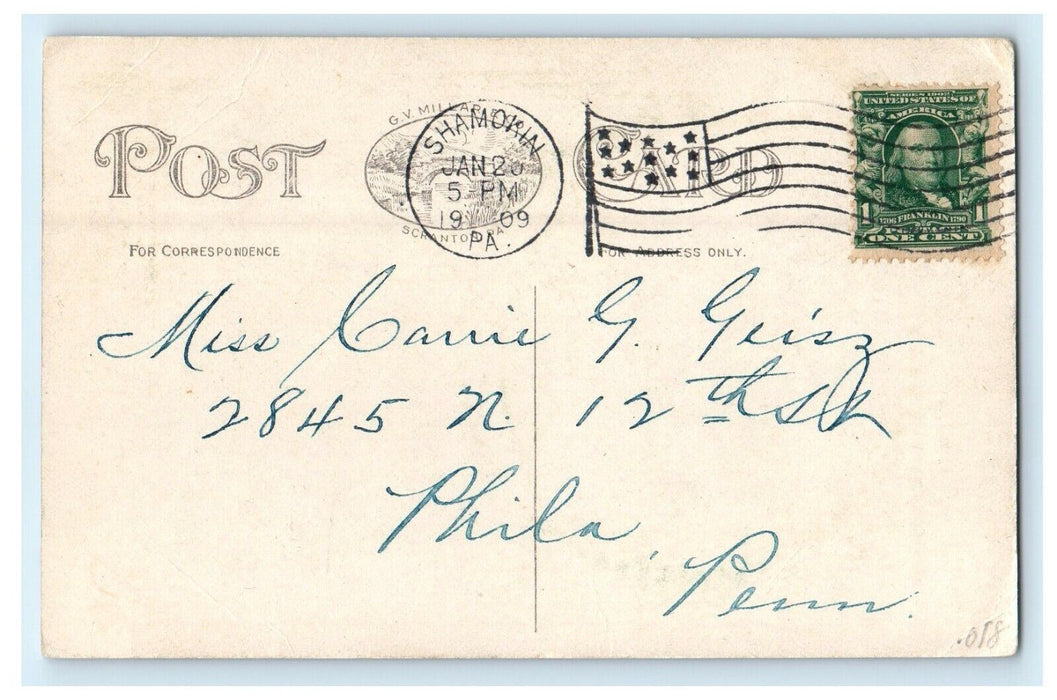 POST CARD
G.V. MILLAR & CO.
SCRANTON, PA.
SHAMOKIN
JAN 20
5 PM
1909
PA.
SERIES 1902
UNITED STATES OF
AMERICA
1 1706 FRANKLIN 1790 1
POSTAGE
ONE CENT
FOR CORRESPONDENCE
FOR ADDRESS ONLY.
Miss Carrie G. Geisz
2845 N. 12th St
Phila,
Penn.
.018